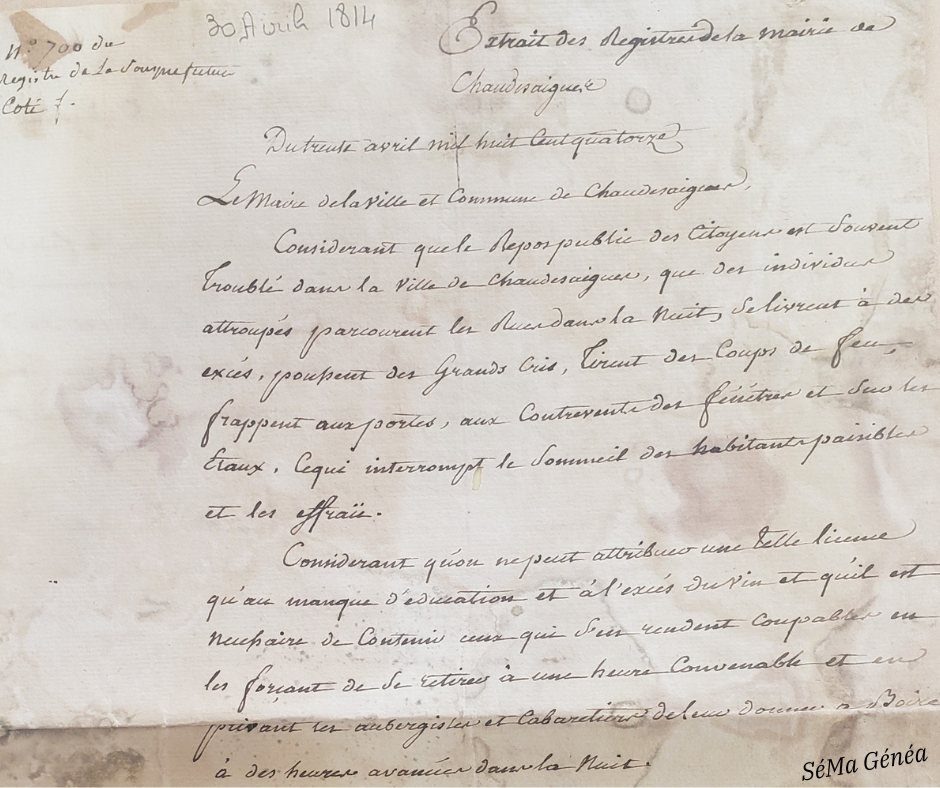 30 Avril 1814
N.° 700 du
Registre de la Souprefecture
Coté f.
Extrait des Registres de la mairie de
Chaudesaigues
Du trente avril mil huit Cent quatorze
Le Maire de la Ville et Commune de Chaudesaigues,
Considerant que le Repos public des Citoyens est Souvent
Troublé dans la Ville de Chaudesaigues, que des individus
attroupés parcourent les Rues dans la Nuit, Se livrent à des
excés, poussent des Grands Cris, Tirent des Coups de feu,
frappent aux portes, aux Contrevents des fénétres et Sur les
Etaux, Ce qui interrompt le Sommeil des habitants paisibles
et les effraïe.
Considerant qu'on ne peut attribuer une Telle licence
qu'au manque d'education et à l'excés du vin et qu'il est
Necessaire de Contenir ceux qui S'en rendent Coupables en
les forçant de Se retirer à une heure Convenable et en
privant les aubergistes et Cabaretiers de leur donner a Boire
à des heures avancées dans la Nuit.
SéMa Généa